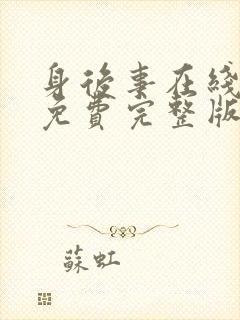 身後事在綫
免費完整版
蘇虹